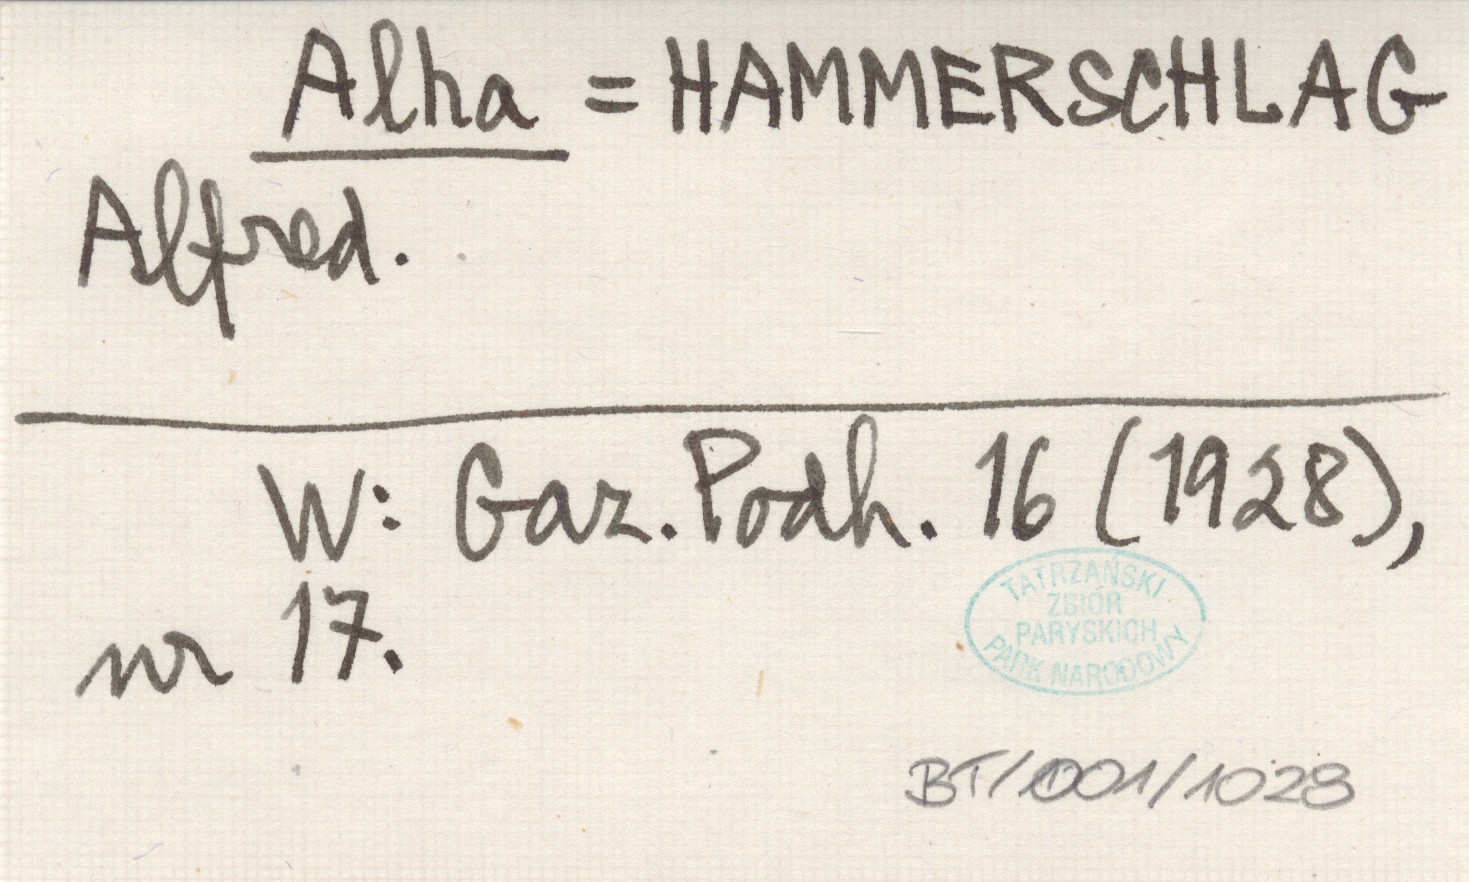 Alha = HAMMERSCHLAG
Alfred.
W: Gaz. Podh. 16 (1928),
nr 17.
TATRZAŃSKI
ZBIÓR
PARYSKICH
PARK NARODOWY
BT/001/1028